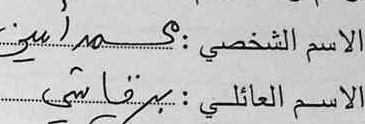 الاسم الشخصي : محمد أمين
الاسم العائلي : برقاشي